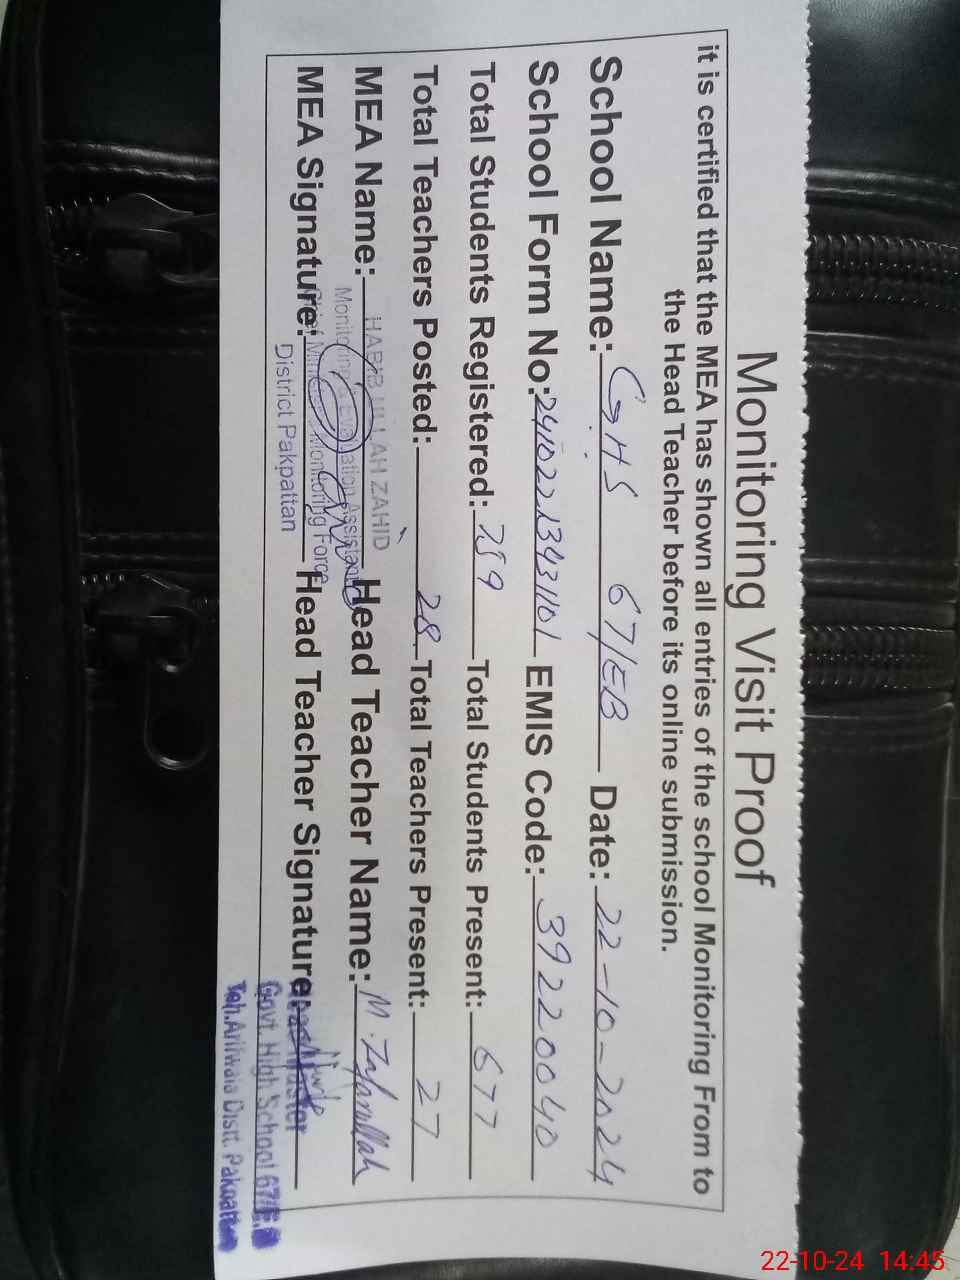 Monitoring Visit Proof
it is certified that the MEA has shown all entries of the school Monitoring From to
the Head Teacher before its online submission.
School Name: GHS 67/EB Date: 22-10-2024
School Form No: EMIS Code: 39220040
Total Students Registered: Total Students Present: 677
Total Teachers Posted: 28 Total Teachers Present: 27
MEA Name: HABIB ULLAH ZAHID Head Teacher Name: M. Zafarullah
Monitoring & Evaluation Assistant
MEA Signature: Head Teacher Signature:
Chief Minister's Monitoring Force
District Pakpattan
Headmaster
Govt. High School 67/E.B
Teh. Arifwala Distt. Pakpattan
22-10-24 14:45